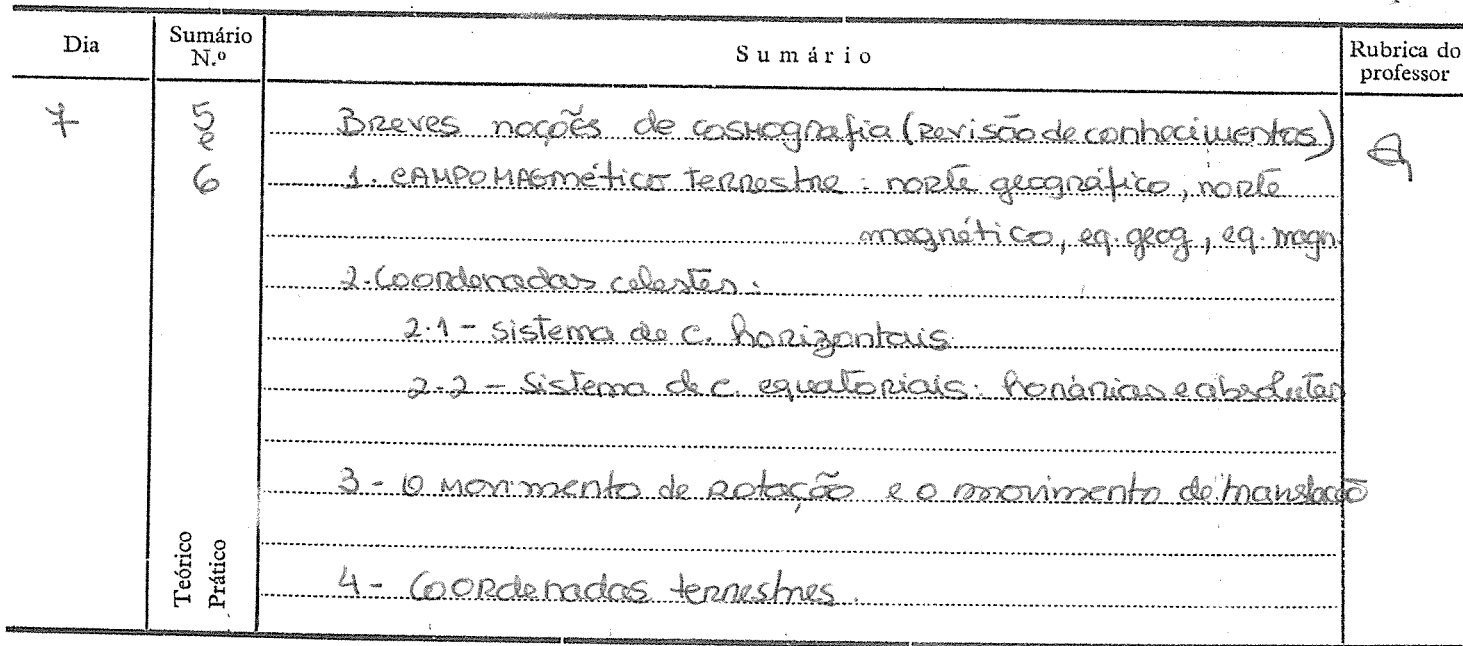 Dia
Sumário N.º
Sumário
Rubrica do professor
7
5 e 6
Breves noções de cosmografia (Revisão de conhecimentos)
1. Campo magnético terrestre: norte geográfico, norte
magnético, eq. geog, eq. magn.
2. Coordenadas celestes:
2.1 - Sistema de c. horizontais
2.2 - Sistema de c. equatoriais: horárias e absolutas
3 - O movimento de rotação e o movimento de translação
4 - Coordenadas terrestres.
Teórico
Prático